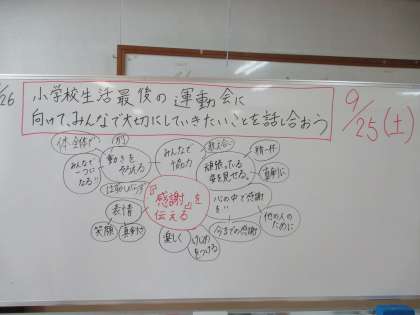 26
小学校生活最後の運動会に
向けて、みんなで大切にしていきたいことを話し合おう
9/25(土)
体全体で
みんなで
一つに
なる!!
動きを
そろえる
みんなで
協力
教え合う
頑張っている
姿を見せる。
精一杯
真剣に
表情
笑顔
真剣さ
『感謝』を
伝える
心の中で感謝
を!!
他の人の
ために
今までの感謝
楽しく
けじめ
をつける